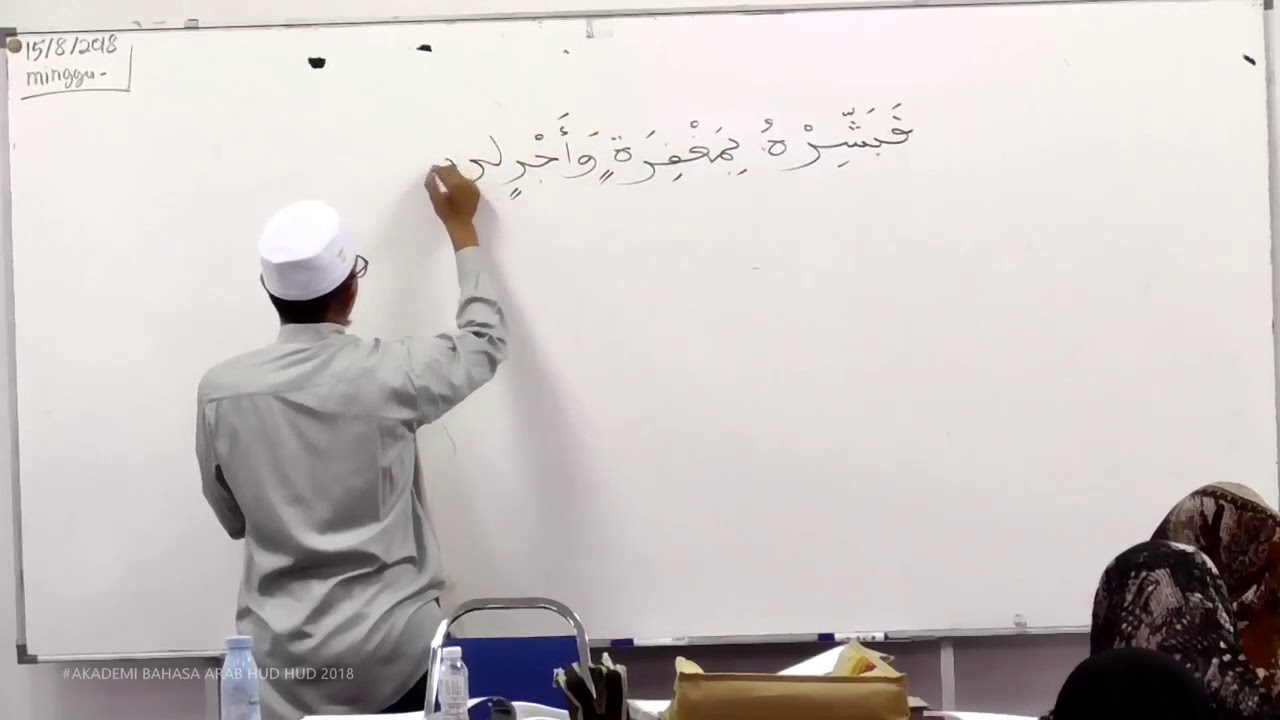 15/8/2018
minggu-
فَبَشِّرْهُ بِمَغْفِرَةٍ وَأَجْرٍ
#AKADEMI BAHASA ARAB HUD HUD 2018